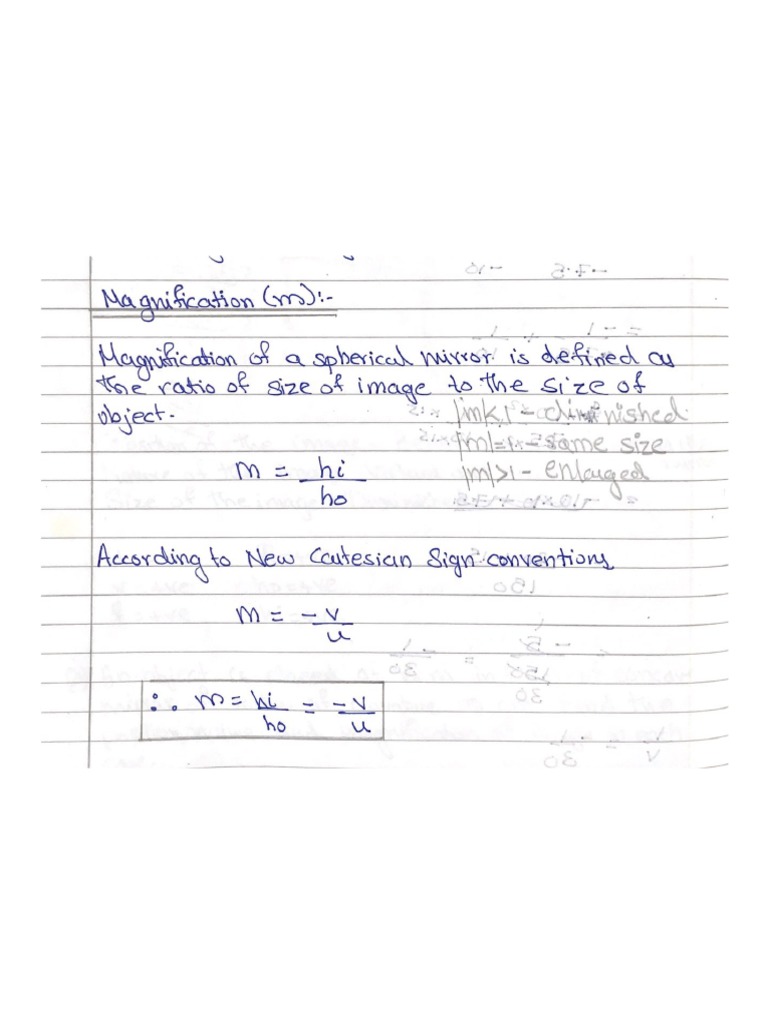 Magnification (m):-
Magnification of a spherical mirror is defined as
the ratio of size of image to the size of
object.
|m|<1 - diminished
|m|=1 - same size
m = hi/ho
|m|>1 - enlarged
According to New Cartesian Sign conventions
m = -v/u
∴ m = hi/ho = -v/u